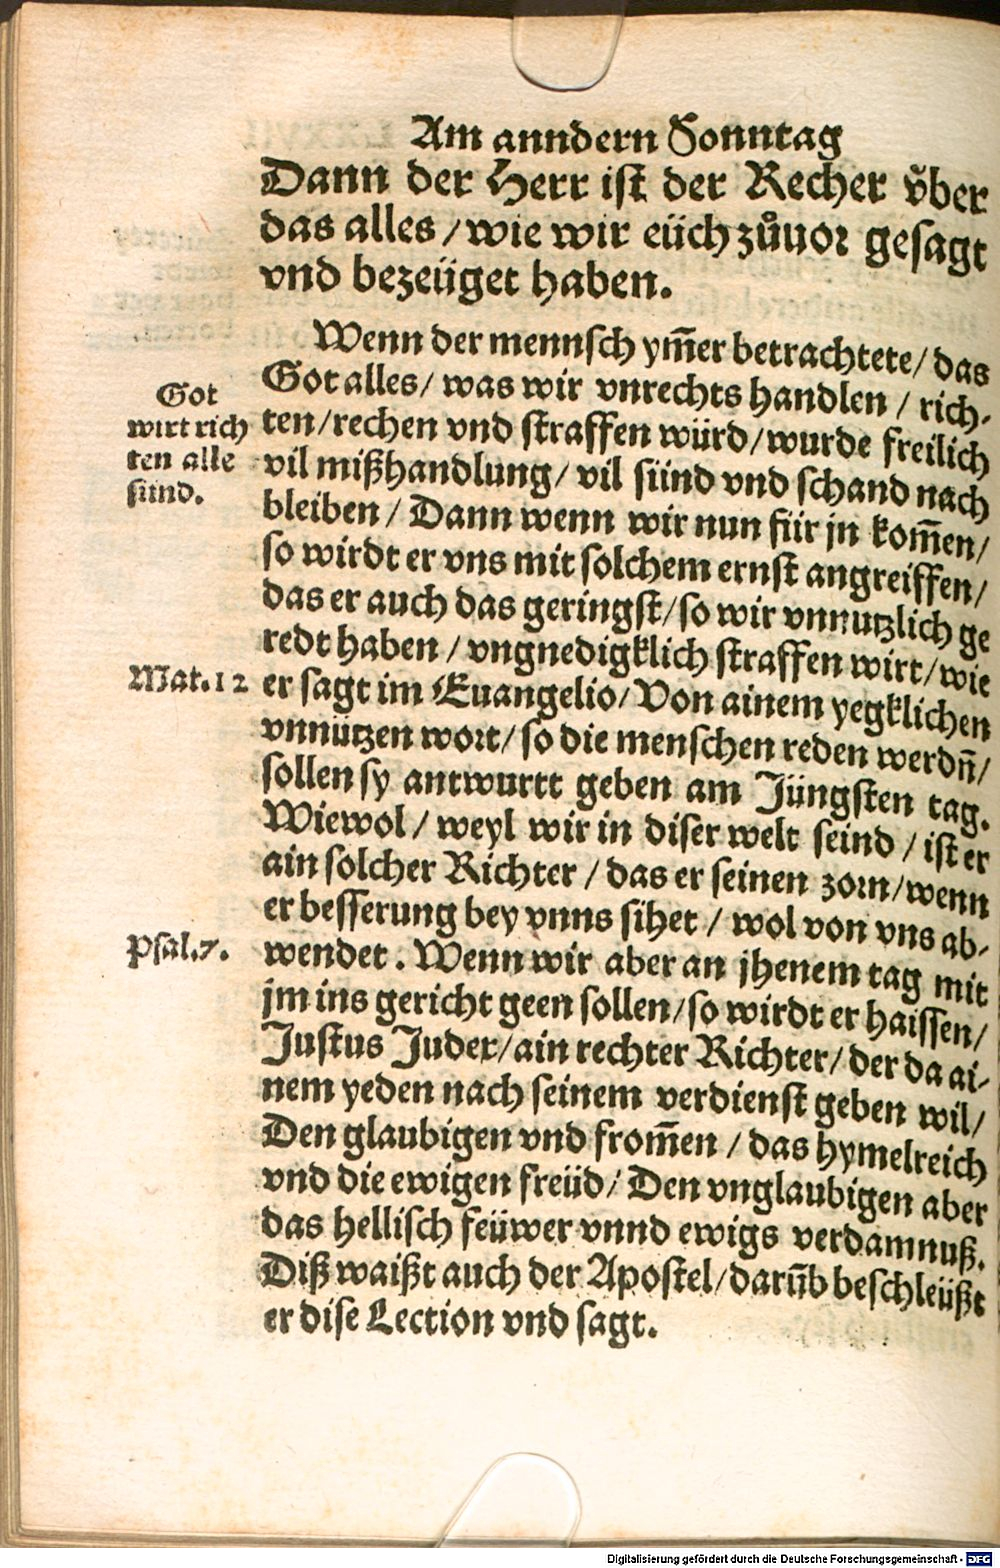 Am anndern Sonntag
Dann der Herr ist der Recher v̌ber
das alles / wie wir eüch zůuor gesagt
vnd bezeüget haben.
Wenn der mennsch ym̄er betrachtete / das
Got alles / was wir vnrechts handlen / rich-
ten / rechen vnd straffen würd / wurde freilich
vil mißhandlung / vil sünd vnd schand nach
bleiben / Dann wenn wir nun für jn kom̄en /
so wirdt er vns mit solchem ernst angreiffen /
das er auch das geringst / so wir vnnutzlich ge
redt haben / vngnedigklich straffen wirt / wie
er sagt im Euangelio / Von ainem yegklichen
vnnützen wort / so die menschen reden werdn̄ /
sollen sy antwurtt geben am Jüngsten tag.
Wiewol / weyl wir in diser welt seind / ist er
ain solcher Richter / das er seinen zorn / wenn
er besserung bey vnns sihet / wol von vns ab-
wendet . Wenn wir aber an jhenem tag mit
jm ins gericht geen sollen / so wirdt er haissen /
Justus Juder / ain rechter Richter / der da ai-
nem yeden nach seinem verdienst geben wil /
Den glaubigen vnd from̄en / das hymelreich
vnd die ewigen freüd / Den vnglaubigen aber
das hellisch feüwer vnnd ewigs verdamnuß.
Diß waißt auch der Apostel / darūb beschleüßt
er dise Lection vnd sagt.
Got
wirt rich
ten alle
sünd.
Mat.12
Psal.7.
Digitalisierung gefördert durch die Deutsche Forschungsgemeinschaft - DFG